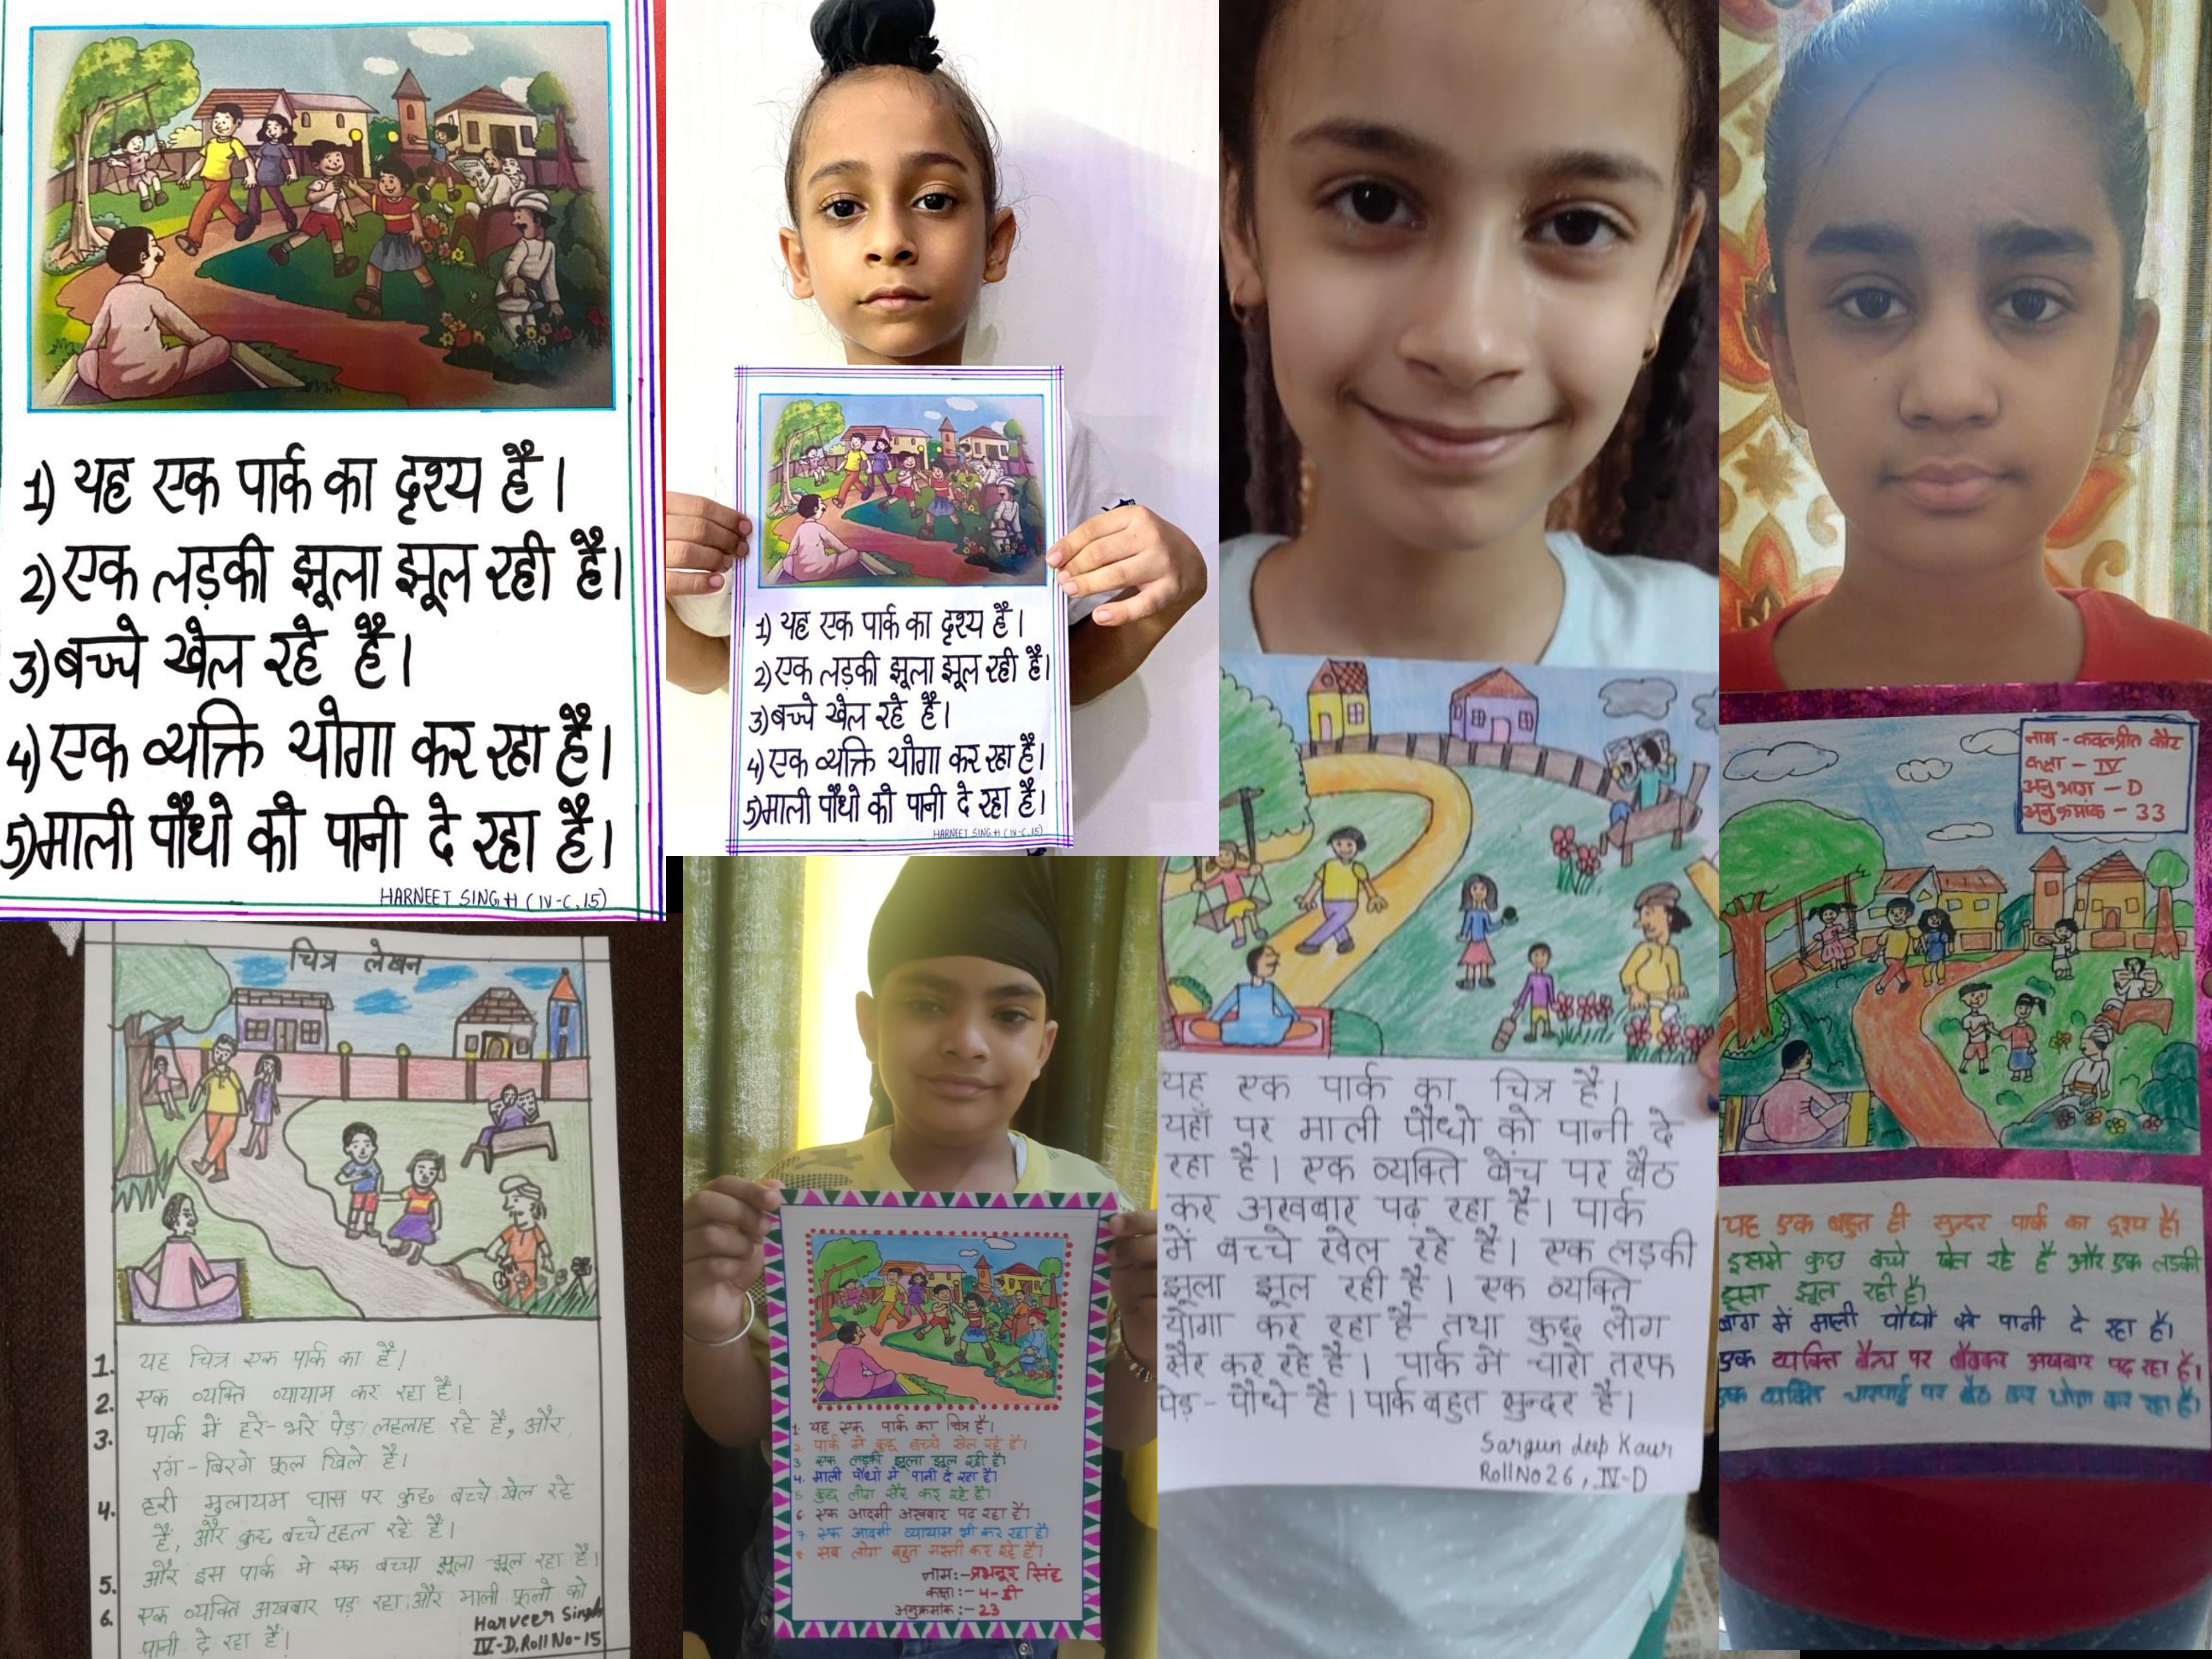 1) यह एक पार्क का दृश्य है।
2) एक लड़की झूला झूल रही है।
3) बच्चे खेल रहे हैं।
4) एक व्यक्ति योगा कर रहा है।
5) माली पौधो को पानी दे रहा है।
HARNEET SINGH (IV-C, 15)
1) यह एक पार्क का दृश्य है।
2) एक लड़की झूला झूल रही है।
3) बच्चे खेल रहे हैं।
4) एक व्यक्ति योगा कर रहा है।
5) माली पौधो को पानी दे रहा है।
HARNEET SINGH (IV-C, 15)
चित्र लेखन
1. यह चित्र एक पार्क का है!
2. एक व्यक्ति व्यायाम कर रहा है!
3. पार्क में हरे-भरे पेड़ लहलाह रहे है, और
रंग-बिरगे फूल खिले है।
4. हरी मुलायम घास पर कुछ बच्चे खेल रहे
है, और कुछ बच्चे टहल रहे है।
5. और इस पार्क मे एक बच्चा झूला झूल रहा है।
6. एक व्यक्ति अखबार पड़ रहा और माली फूलो को
पानी दे रहा है!
Harveer Singh
IV-D, Roll No-15
1. यह एक पार्क का चित्र है।
2. पार्क मे कुछ बच्चे खेल रहे है।
3 एक लड़की झूला झूल रही है।
4. माली पौधो मे पानी दे रहा है।
5 कुछ लोग सैर कर रहे है।
6 एक आदमी अखबार पढ रहा है।
7 एक आदमी व्यायाम भी कर रहा है।
8 सब लोग बहुत मस्ती कर रहे है।
नाम:- प्रभनूर सिंह
कक्षा:- 4-
अनुक्रमांक:- 23
यह एक पार्क का चित्र है।
यहाँ पर माली पौधो को पानी दे
रहा है। एक व्यक्ति बेंच पर बैठ
कर अखबार पढ़ रहा है। पार्क
में बच्चे खेल रहे है। एक लड़की
झूला झूल रही है। एक व्यक्ति
योगा कर रहा है तथा कुछ लोग
सैर कर रहे है। पार्क मे चारो तरफ
पेड़-पौधे है। पार्क बहुत सुन्दर है।
Sargun deep Kaur
Roll No 26, IV-D
नाम - कवलप्रीत कौर
कक्षा - IV
अनुभाग - D
अनुक्रमांक - 33
यह एक बहुत ही सुन्दर पार्क का दृश्य है।
इसमे कुछ बच्चे खेल रहे है और एक लडकी
झूला झूल रही है।
बाग में माली पौधों को पानी दे रहा है।
एक व्यक्ति बैन्च पर बैठकर अखबार पढ रहा है।
एक व्यक्ति चारपाई पर बैठ कर योगा कर रहा है।